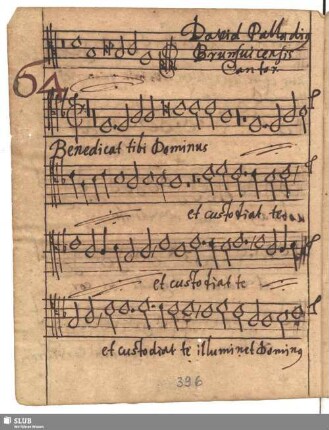 David Palladig
Brunsuicensis
Cantor
64
Benedicat tibi Dominus
et custodiat te
et custodiat te
et custodiat te illuminet Doming
396
SLUB
Wir führen Wissen.